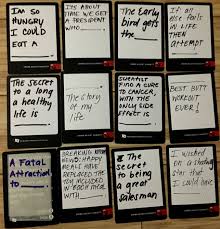 Im so
HUNGRY
I COULD
EAT A
ITS ABOUT
TIME WE GET
A PRESIDENT
WHO
The Early
bird gets
the
If all
else fails
in LIFE
THEN
attempt
The SECRET
to a long
a healthy
life is
The story
of my
life
SCIENTIST
FIND A CURE
TO CANCER,
WITH THE
ONLY SIDE
EFFECT IS
BEST BUTT
WORKOUT
EVER!
A FATAL
ATTRACTION
to
BREAKING
NEWS: HAPPY
MEALS HAVE
REPLACED THE
TOY INCLUDED
IN EACH MEAL
WITH
The
secret
to being
a great
salesman
I wished
on a shooting
star that
I could